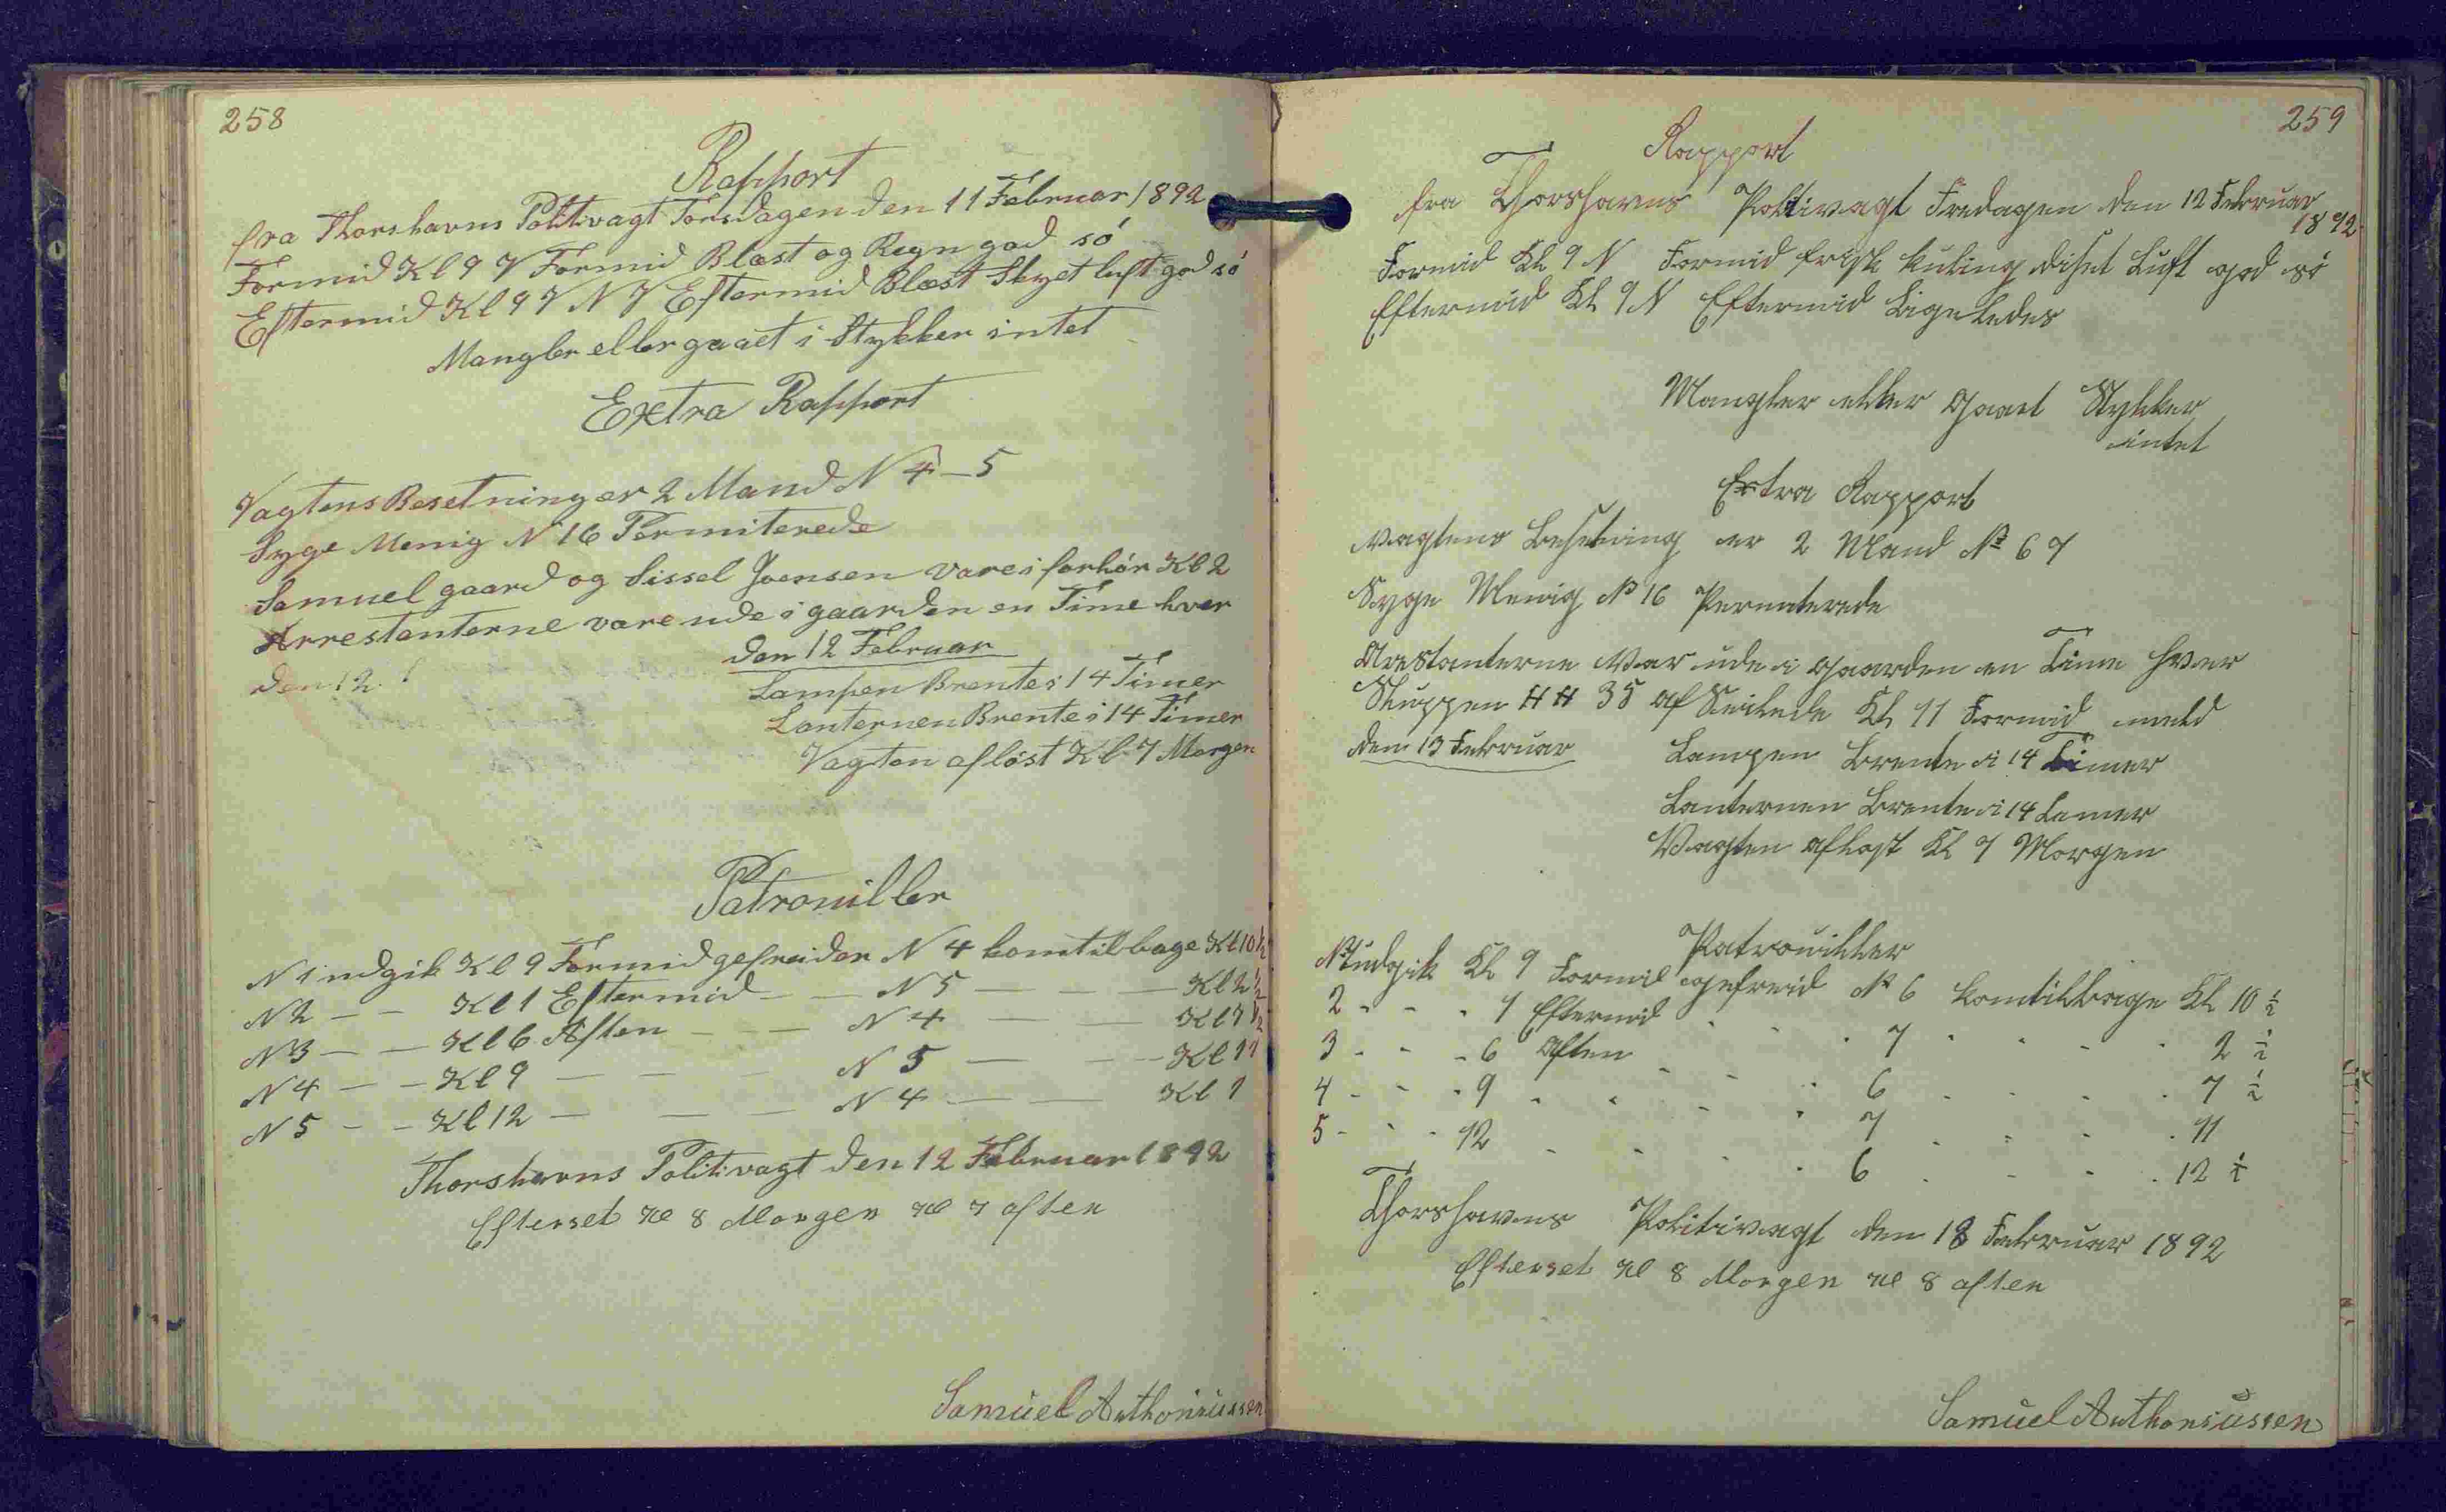 258
Rapport
fra Thorshavns Politivagt Torsdagen den 11 Februar 1892
Formid Kl 9 V Formid Blæst og Regn god só
Eftermid Kl 9 V N V Eftermid Blæst Skyet luft god só
Mangler eller gaaet i Stykker intet
Extra Rapport
Vagtens Besetning er 2 Mand N 4-5
Syge Menig N 16 Permiterede
Samuel gaard og Sissel Joensen vare i forhör Kl 2
Arrestanterne vare ude i gaarden en Time hver
den 12 Februar
den 12
Lampen Brente i 14 Timer
Lanternen Brente i 14 Timer
Vagten aflöst Kl 7 Morgen
Patrouiller
N 1 udgik Kl 9 Formid gefreider N 4 kom tilbage Kl 10 1/2
N 2 - - Kl 1 Eftermid - - N 5 - - - Kl 2 1/2
N 3 - - Kl 6 Aften - - - N 4 - - - Kl 7 1/2
N 4 - - Kl 9 - - - N 5 - - - Kl 11
N 5 - - Kl 12 - - - N 4 - - Kl 1
Thorshavns Politivagt den 12 Februar 1892
Efterset Kl 8 Morgen Kl 7 aften
Samuel Anthoniussen
259
Rapport
fra Thorshavns Politivagt Fredagen den 12 Februar
1892
Formid Kl 9 N Formid frisk kuling diset Luft god só
Eftermid Kl 9 N Eftermid Ligeledes
Mangler eller gaaet Stykker
intet
Extra Rapport
Vagtens Besetning er 2 Mand No 6 7
Syge Menig No 16 Permterede
Arestanterne Var ude i gaarden en Time hver
Sluppen H H 35 af Seilede Kl 11 Formid
den 13 Februar
Lampen Brente i 14 Timer
Lanternen Brente i 14 Tamer
Vagten aflöst Kl 7 Morgen
Patrouiller
N 1 udgik Kl 9 Formid gefreid No 6 kom tilbage Kl 10 1/2
2 - - - 1 Eftermid - - - 7 - - - - 2 1/2
3 - - - 6 Aften - - - 6 - - - - 7 1/2
4 - - - 9 - - - - 7 - - - - 11
5 - - - 12 - - - - 6 - - - - 12 1/2
Thorshavns Politivagt den 13 Februar 1892
Efterset Kl 8 Morgen Kl 8 aften
Samuel Anthoniussen